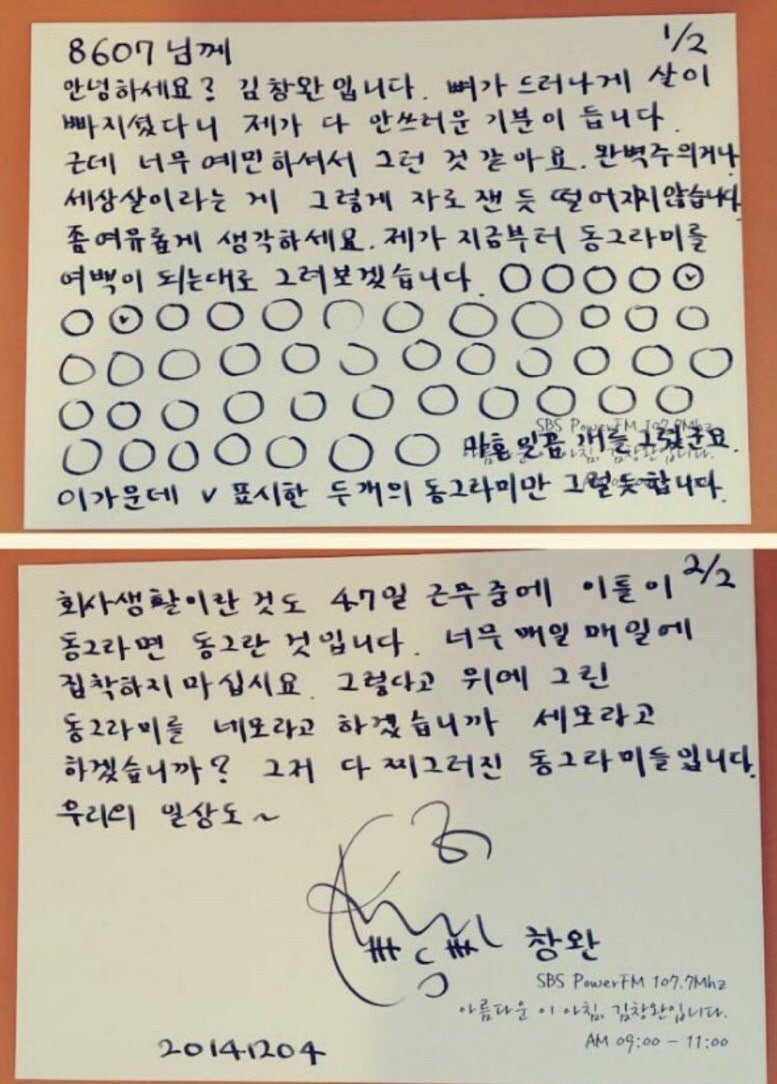 8607님께
1/2
안녕하세요? 김창완입니다. 뼈가 드러나게 살이
빠지셨다니 제가 다 안쓰러운 기분이 듭니다.
근데 너무 예민하셔서 그런 것 같아요. 완벽주의거나
세상살이라는 게 그렇게 자로 잰 듯 떨어지지 않습니다
좀 여유롭게 생각하세요. 제가 지금부터 동그라미를
여백이 되는대로 그려보겠습니다.
SBS PowerFM 107.7Mhz
마흔 일곱 개를 그렸군요.
김창완입니다.
이 가운데 v 표시한 두 개의 동그라미만 그럴듯합니다.
2/2
회사생활이란 것도 47일 근무 중에 이틀이
동그라면 동그란 것입니다. 너무 매일 매일에
집착하지 마십시요. 그렇다고 위에 그린
동그라미를 네모라고 하겠습니까 세모라고
하겠습니까? 그저 다 찌그러진 동그라미들입니다.
우리의 일상도~
창완
SBS PowerFM 107.7Mhz
아름다운 이 아침, 김창완입니다.
AM 09:00 - 11:00
20141204